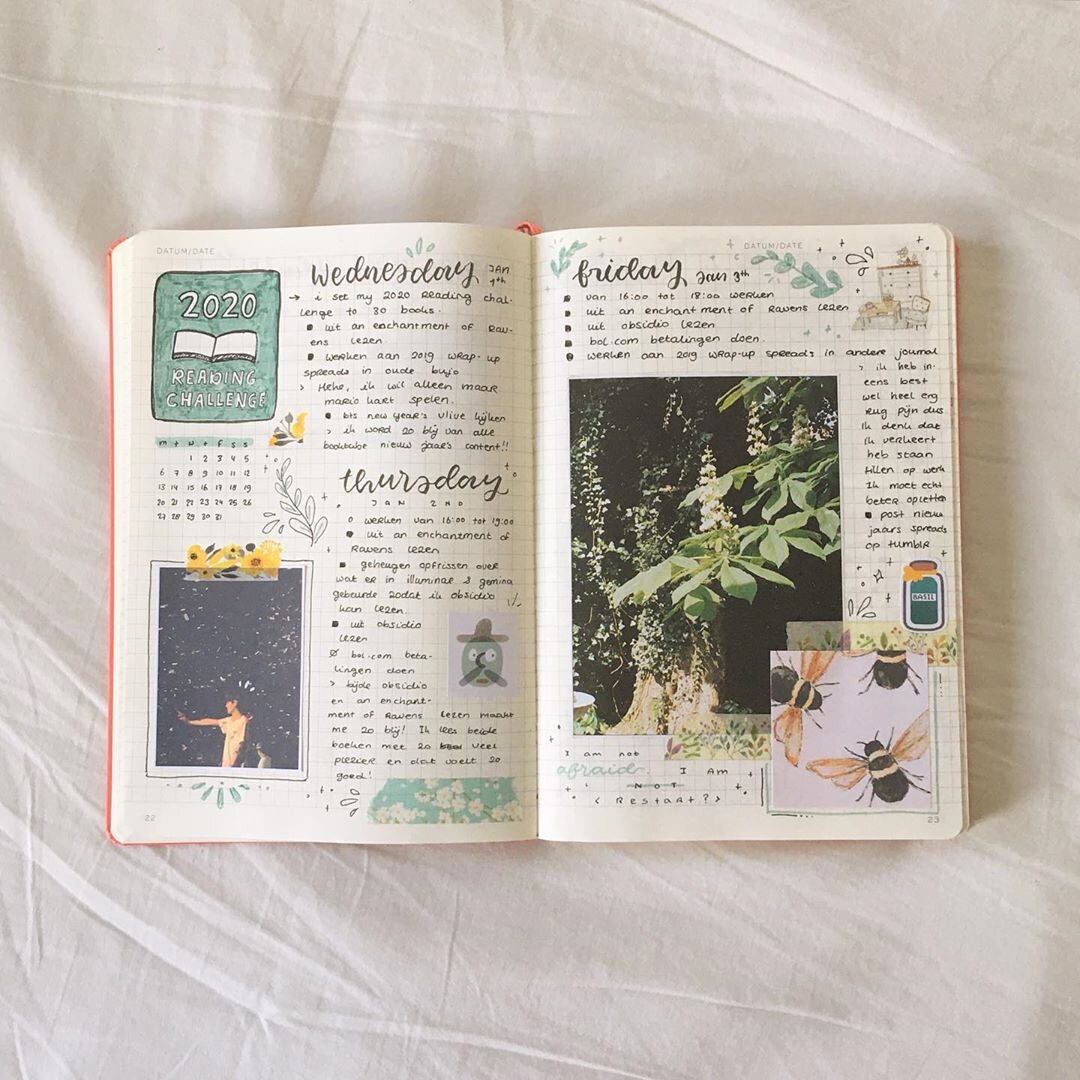 DATUM/DATE
2020
READING
CHALLENGE
m t w t f s s
1 2 3 4 5
6 7 8 9 10 11 12
13 14 15 16 17 18 19
20 21 22 23 24 25 26
27 28 29 30 31
wednesday JAN
1th
→ i set my 2020 Reading chal-
lenge to 30 books.
■ uit an enchantment of Rav-
ens lezen
■ werken aan 2019 wrap-up
spreads in oude bujo
> Hehe, ik wil alleen maar
mario kart spelen.
■ bts new year's vlive kijken
> ik word zo blij van alle
booktube nieuw jaar's content!!
thursday
JAN 2ND
o werken van 16:00 tot 19:00
■ uit an enchantment of
Ravens lezen
■ geheugen opfrissen over
wat er in illuminae & gemina
gebeurde zodat ik obsidio
kan lezen.
■ uit obsidio
lezen
ø bol.com beta-
lingen doen
> beide obsidio
en an enchant-
ment of Ravens lezen maakt
me zo blij! Ik lees beide
boeken met zo veel
plezier en dat voelt zo
goed!
22
DATUM/DATE
friday Jan 3th
■ van 16:00 tot 18:00 werken
■ uit an enchantment of Ravens lezen
■ uit obsidio lezen
■ bol.com betalingen doen.
■ werken aan 2019 wrap-up spreads in andere journal
> ik heb in-
eens best
wel heel erg
rug pijn dus
Ik denk dat
ik verkeert
heb staan
tillen op werk
Ik moet echt
beter opletten
■ post nieuw
jaars spreads
op tumblr
BASIL
I am not
afraid. I AM
NOT
< RESTART? >
23